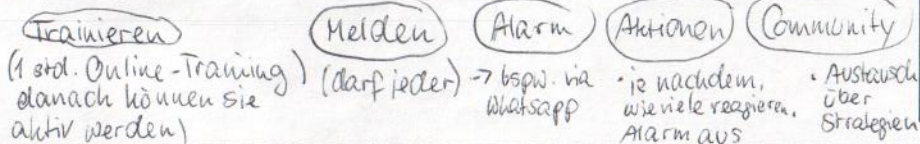 Trainieren
(1 std. Online-Training)
danach können sie
aktiv werden)
Melden
(darf jeder)
Alarm
→ bspw. via
Whatsapp
Aktionen
• je nachdem,
wieviele reagieren.
Alarm aus
Community
• Austausch
über
Strategien